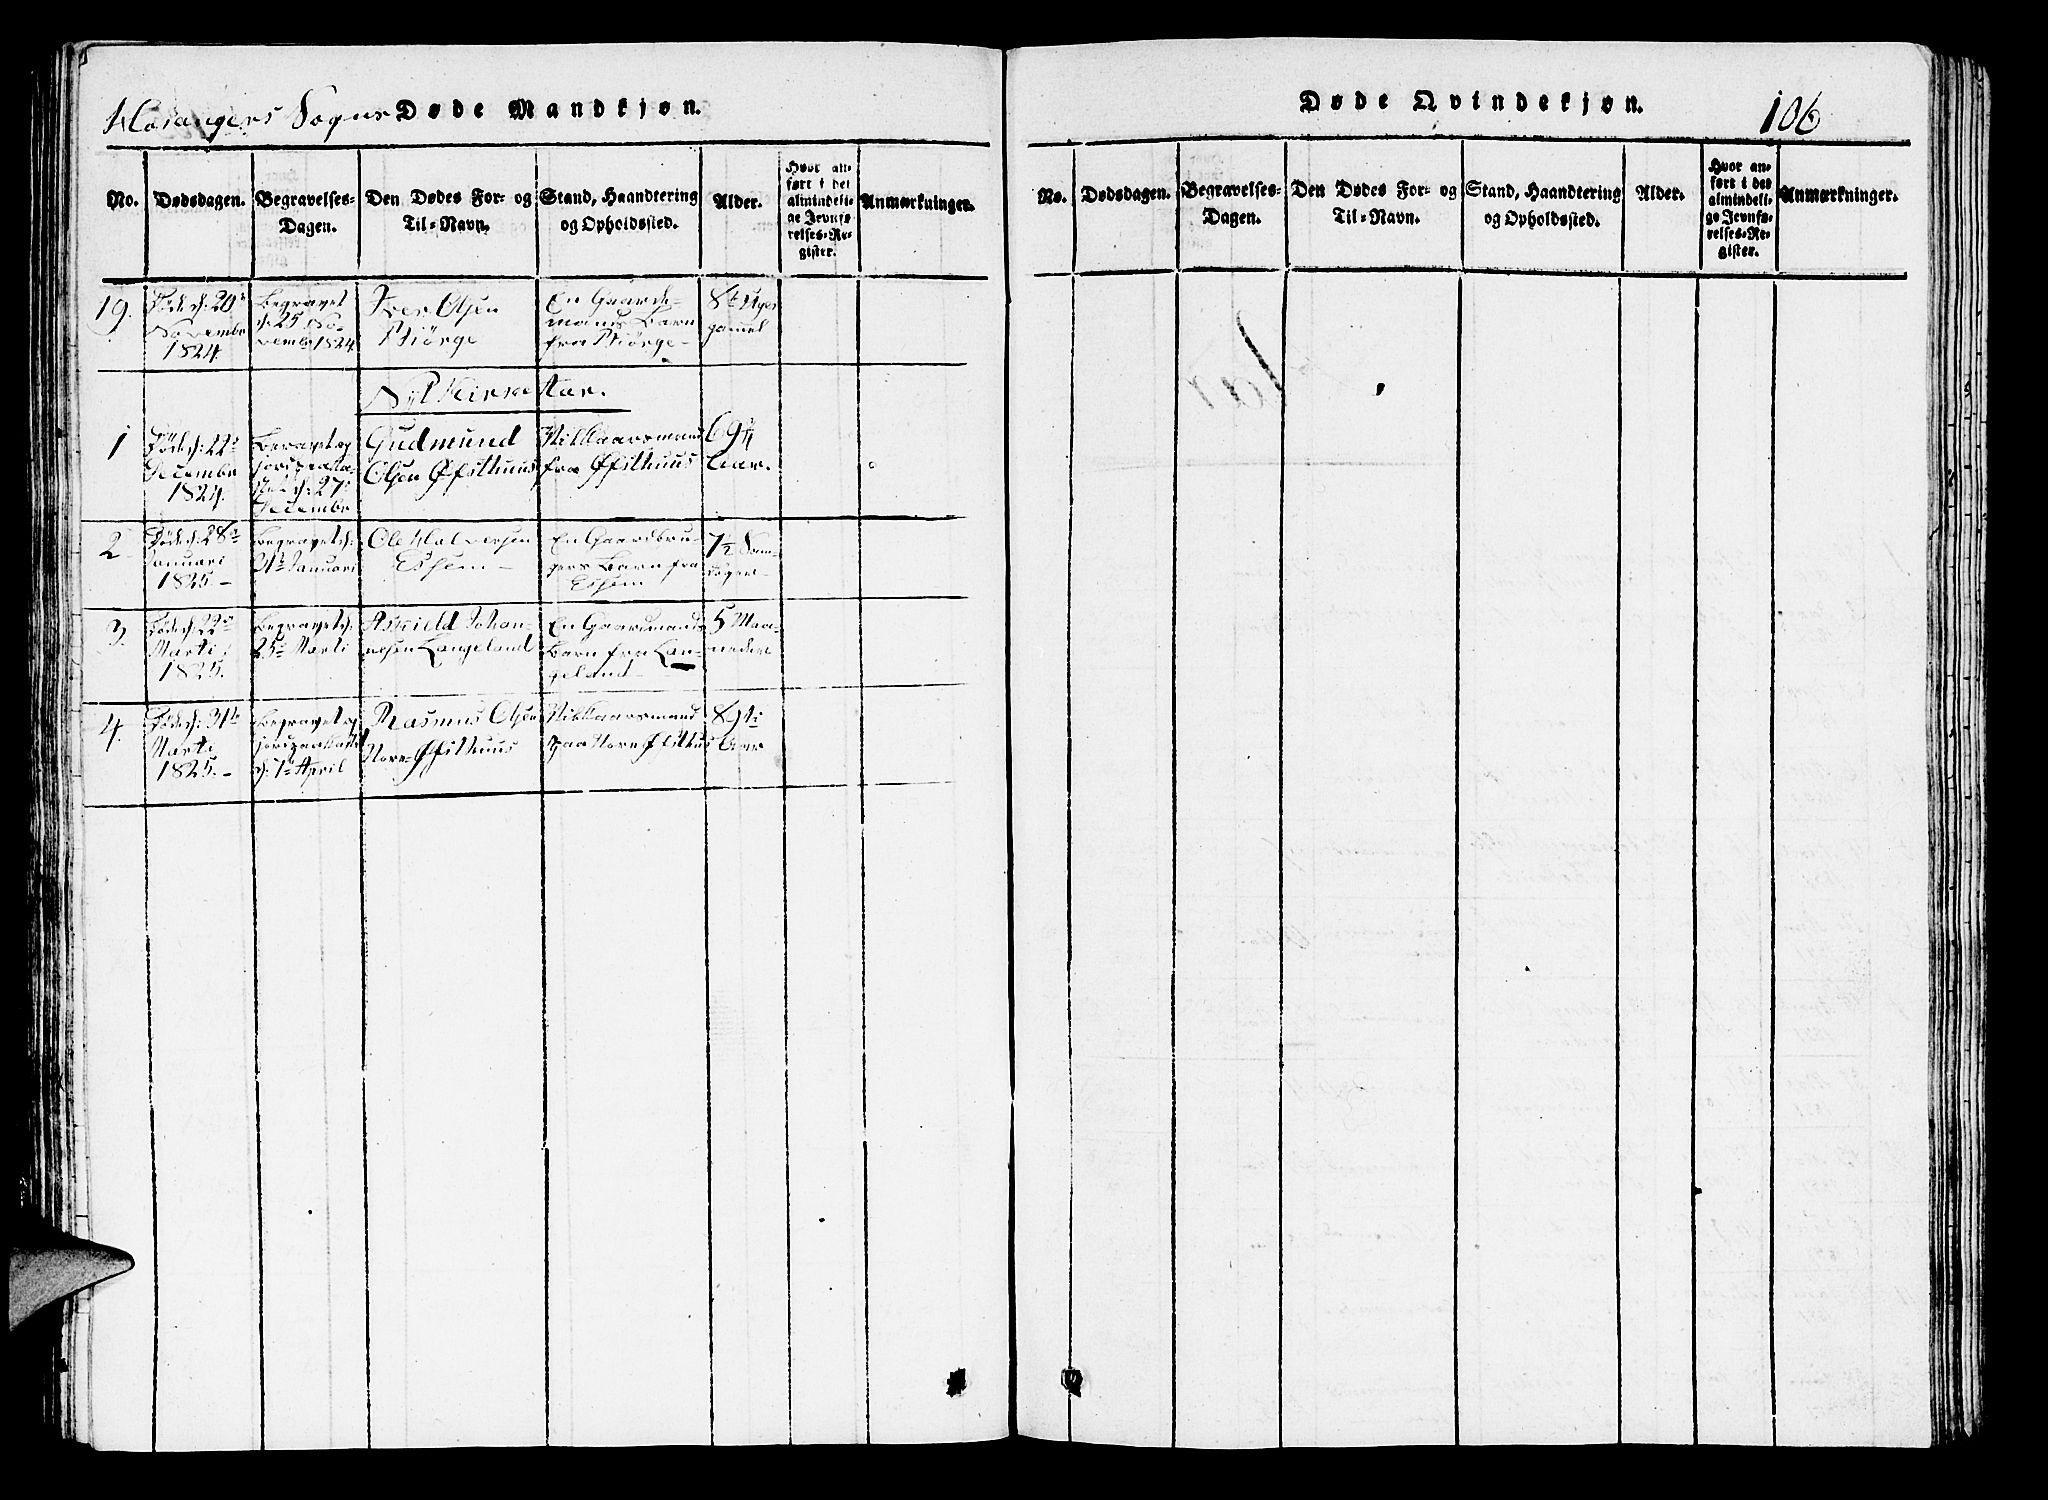 Hosangers Sogns Døde Mandkjøn.
No. Dødsdagen. Begravelses-Dagen. Den Dødes For- og Til-Navn. Stand, Haandtering og Opholdssted. Alder. Hvor anført i det almindelige Jevnførelses-Register. Anmærkninger.
19. Døde d: 20de Novembr 1824. Begravet d. 25 Novembr 1824 Iver Olsen Biörge En Gaardemans Barn fra Biörge 8te Uger gamel
Nyt Kirke Aar.
1 Døde d: 22de Decembr 1824. d: 27de Decembr Gudmund Olsen Øfsthuus Vilkaarsmand fra Øfsthuus 69 Aar.
2 Døde d: 28de Januari 1825. Begravet d: 31te Januari Ole Halversen En Gaardbrugers Barn fra 7½
3. Døde d: 22de Marti 1825. Begravet d: 25de Marti Johannesen Langeland En Gaardmands Barn fra Langeland 5 Maaneder
4. Døde d: 31te Marti 1825. d: 7de April Rasmus Olsen Nore Øfsthuus Vilkaarsmand paa Nore Øfsthus Aar
Døde Qvindekjøn. 106
No. Dødsdagen. Begravelses-Dagen. Den Dødes For- og Til-Navn. Stand, Haandtering og Opholdssted. Alder. Hvor anført i det almindelige Jevnførelses-Register. Anmærkninger.